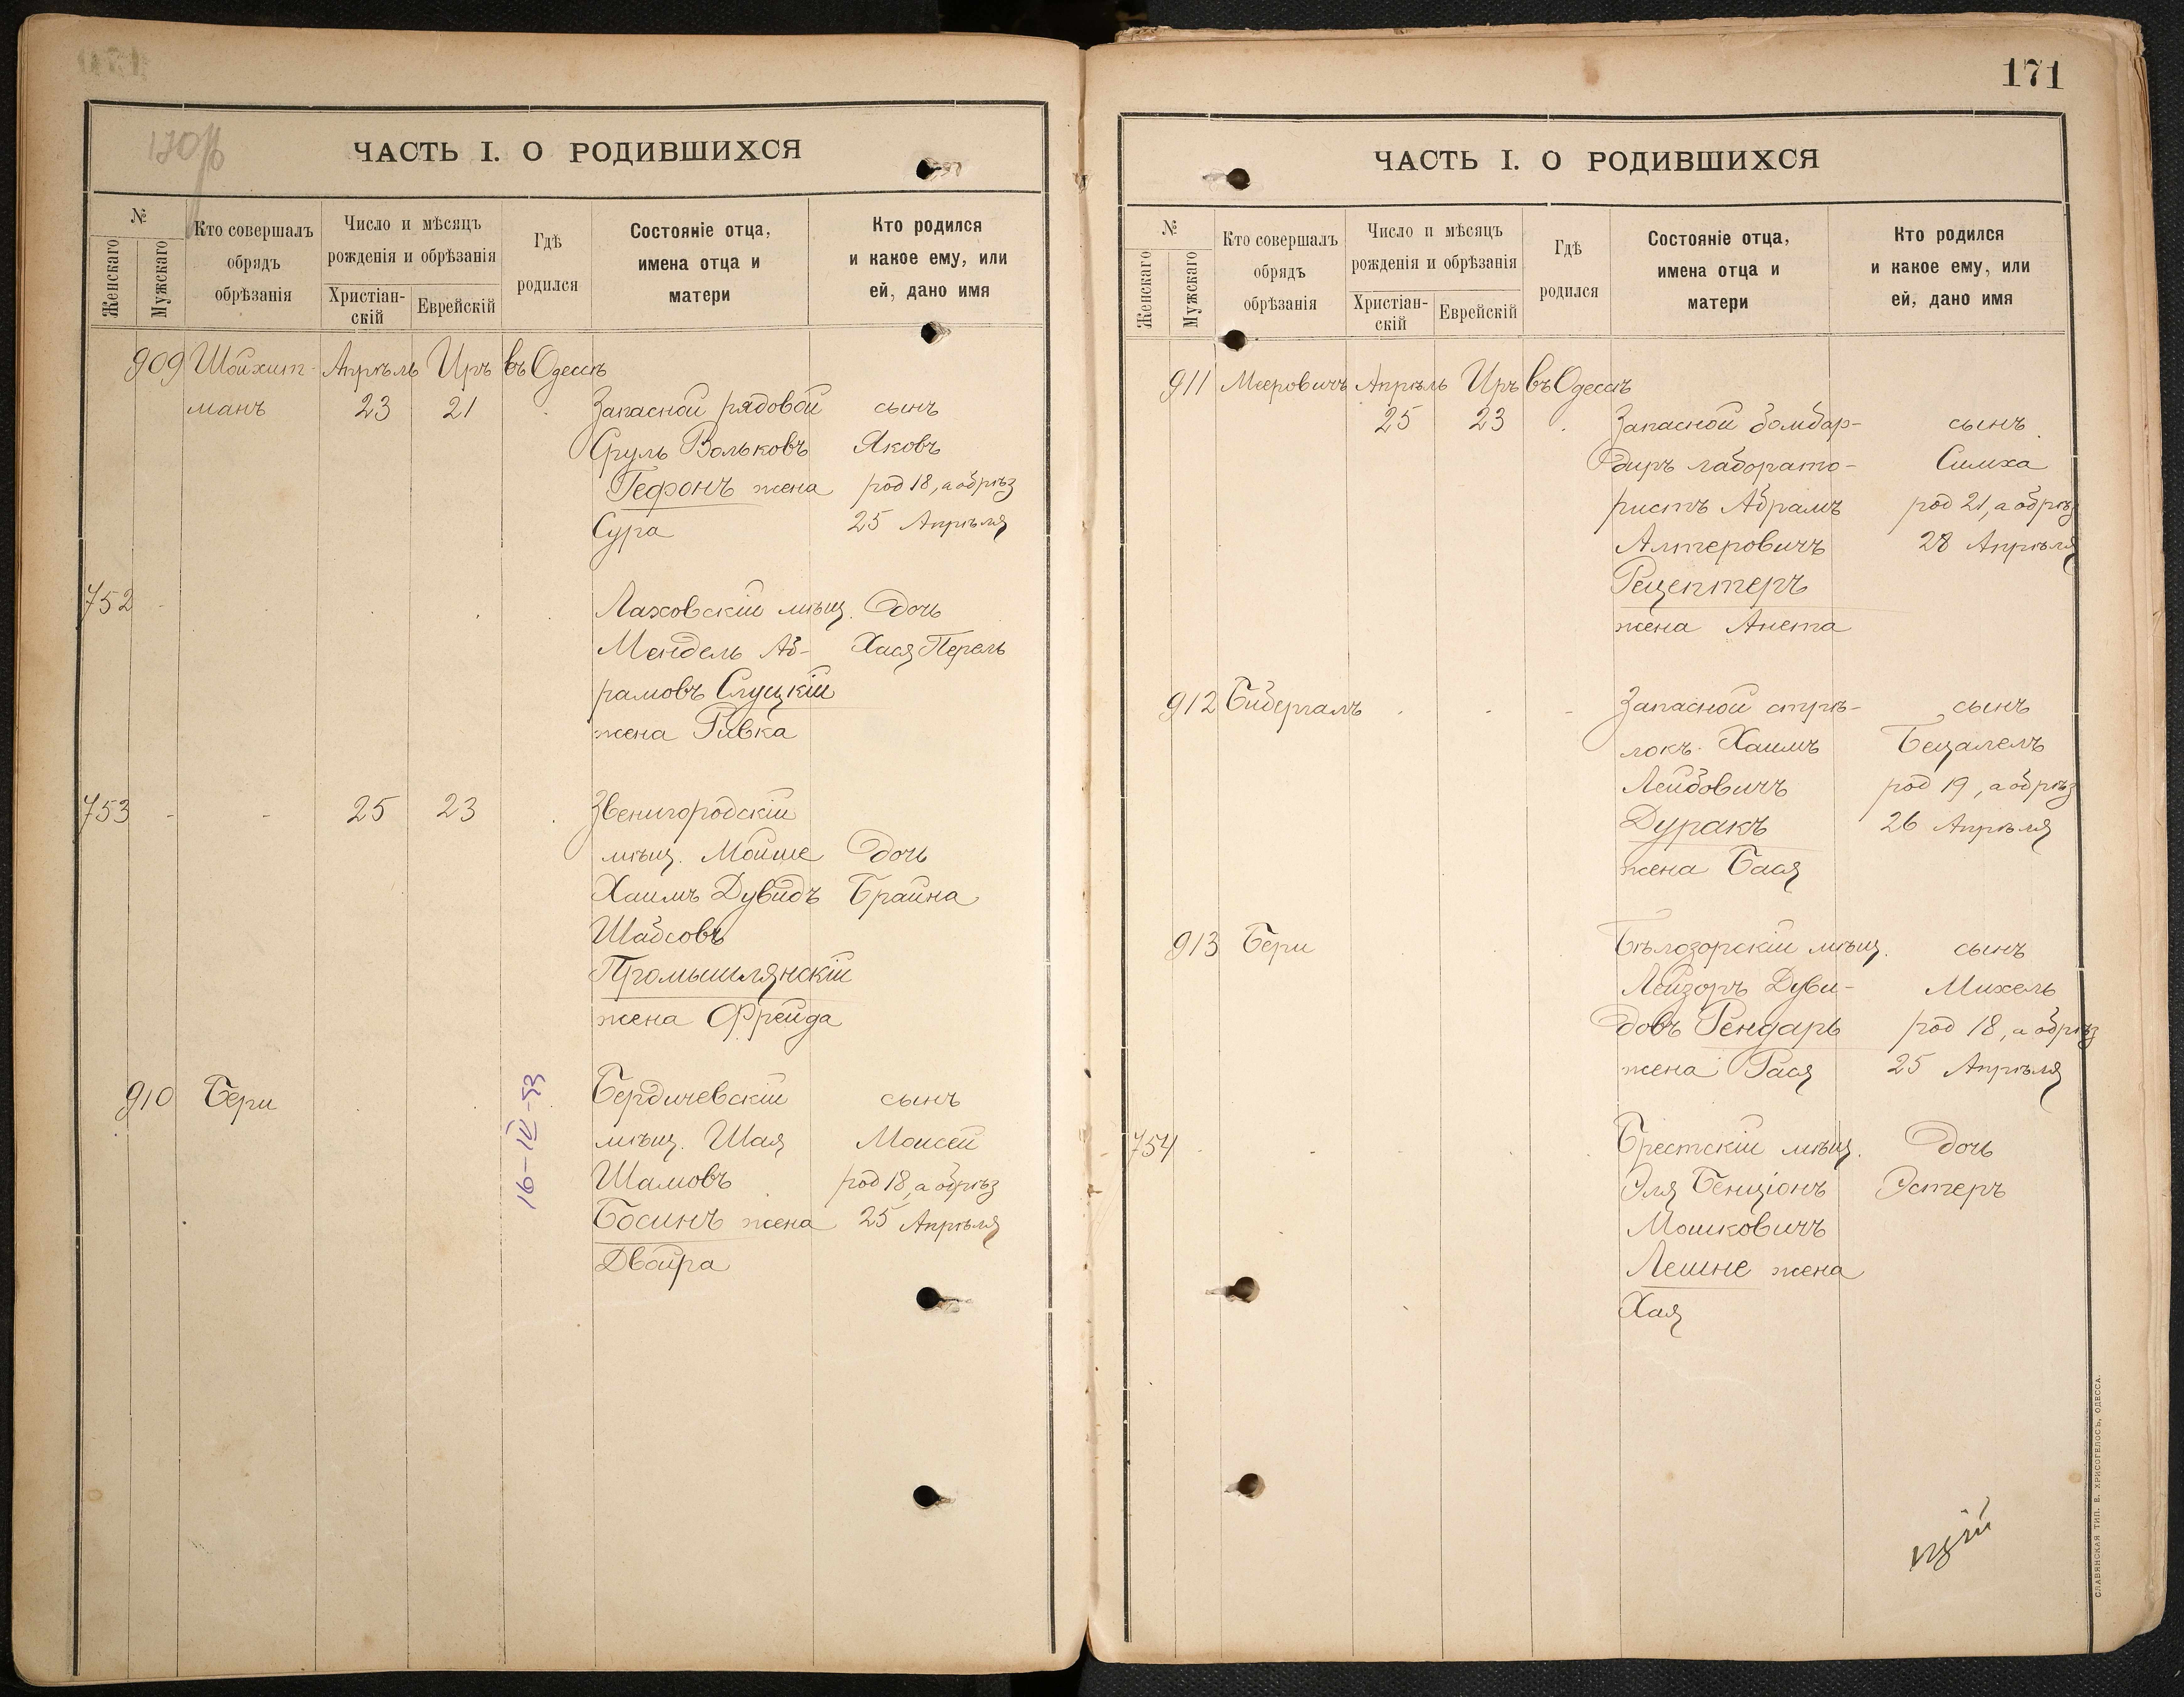 170 об
ЧАСТЬ I. О РОДИВШИХСЯ
№
Женскаго
Мужскаго
Кто совершалъ
обрядъ
обрѣзанія
Число и мѣсяцъ
рожденія и обрѣзанія
Христіан-
скій
Еврейскій
Гдѣ
родился
Состояніе отца,
имена отца и
матери
Кто родился
и какое ему, или
ей, дано имя
909 Шойхит- Апрѣль Иръ въ Одессѣ
манъ 23 21 Запасной рядовой сынъ
Сруль Вольковъ Яковъ
Гефонъ жена род 18, а обрѣз
Сура 25 Апрѣля
752 - Ляховскій мѣщ. дочь
Мендель Аб- Хася Перель
рамовъ Слуцкій
жена Ривка
753 - - 25 23 Звенигородскій
мѣщ. Мойше дочь
Хаимъ Дувидъ Брайна
Шабсовъ
Промышлянскій
жена Фрейда
910 Бери Бердичевскій сынъ
мѣщ. Шая Моисей
Шамовъ род 18, а обрѣз
Босинъ жена 25 Апрѣля
Двойра
16-IV-53
171
ЧАСТЬ I. О РОДИВШИХСЯ
№
Женскаго
Мужскаго
Кто совершалъ
обрядъ
обрѣзанія
Число и мѣсяцъ
рожденія и обрѣзанія
Христіан-
скій
Еврейскій
Гдѣ
родился
Состояніе отца,
имена отца и
матери
Кто родился
и какое ему, или
ей, дано имя
911 Мееровичъ Апрѣль Иръ въ Одессѣ
25 23 Запасной бомбар- сынъ
диръ лаборато- Симха
ристъ Абрамъ род 21, а обрѣз
Алтеровичъ 28 Апрѣля
Рецептеръ
жена Анета
912 Бибергалъ - - - Запасной стрѣ- сынъ
локъ Хаимъ Бецалелъ
Лейбовичъ род 19, а обрѣз
Дуракъ 26 Апрѣля
жена Бася
913 Бери Бѣлозорскій мѣщ. сынъ
Лейзоръ Дуви- Михель
довъ Гендарь род 18, а обрѣз
жена Рася 25 Апрѣля
754 - - - Брестскій мѣщ. дочь
Эля Бенціонъ Эстеръ
Мошковичъ
Лешне жена
Хая
СЛАВЯНСКАЯ ТИП. Е. ХРИСОГЕЛОСЪ, ОДЕССА.